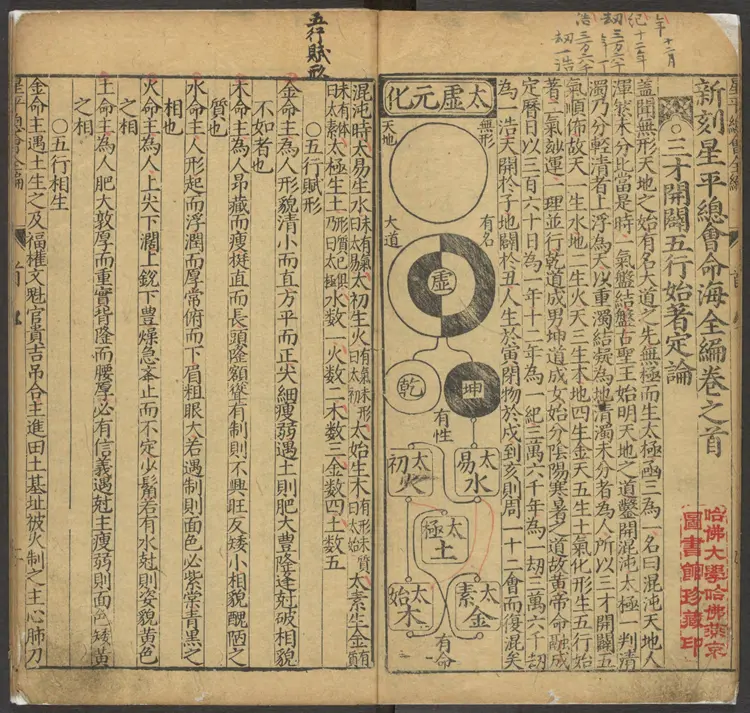 年 十二月
紀 十二年
劫 三万六千年
浩 三万六千劫
劫一浩
新刻星平總會命海全編卷之首
○三才開闢五行始著定論
蓋聞無形天地之始有名大道之先無極而生太極函三為一名曰混沌天地人
渾然未分比當是時一氣盤結盤古聖王始明天地之道鑿開混沌太極一判清
濁乃分輕清者上浮為天以重濁結凝為地清濁未分者為人所以三才開闢五
氣順佈故天一生水地二生火天三生木地四生金天五生土氣化形生五行始
著二氣劾運一理並行乾道成男坤道成女始分陰陽寒暑之道故黃帝命融成
定曆日以三百六十日為一年十二年為一紀三萬六千年為一劫三萬六千劫
為一浩天開於子地闢於丑人生於寅閉物於戌到亥則周一十二會而復混矣
太虛元化
無形
天地
有名
大道
虛
坤
乾
有性
太易水
太初火
太極土
太素金
太始木
有命
哈佛大學哈佛燕京
圖書館珍藏印
五行賦形
混沌時太易生水未有氣曰太易太初生火有氣未形曰太初太始生木有形未質曰太始太素生金有質
未有体曰太素太極生土形質已具乃曰太極水數一火數二木数三金数四土数五
○五行賦形
金命主為人形貌清小而直方平而正尖細瘦弱遇土則肥大豊隆逢尅破相貌
不如者也
木命主為人昂藏而瘦挺直而長頭隆額聳有制則不興旺反矮小相貌醜陋之
質也
水命主人形起而浮濶而厚常俯而下眉粗眼大若遇制則面色必紫棠青黑之
相也
火命主為人上尖下濶上銳下豊燥急峯止而不定少鬚若有水尅則姿貌黃色
之相
土命主為人肥大敦厚而重實背隆而腰厚必有信義遇尅主瘦弱則面色矮黃
之相
○五行相生
金命主遇土生之及福權文魁官貴吉吊合主進田土基址被火制之主心肺刀
星平總會全編
首